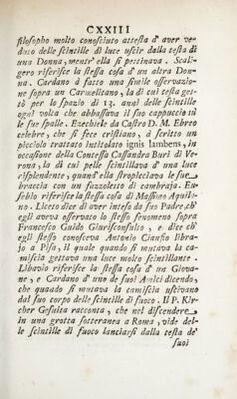 CXXIII
filosopho molto conosciuto attesta d' aver ve-
duto delle scintille di luce uscir dalla testa di
una Donna, mentr' ella si pettinava. Scali-
gero riferisce la stessa cosa d' un altra Don-
na. Cardano à fatto una simile osservazio-
ne sopra un Carmelitano, la di cui testa get-
tò per lo spazio di 13. anni delle scintille
ogni volta che abbassava il suo cappuccio su
le sue spalle. Ezechiele da Castro D. M. Ebreo
celebre, che si fece cristiano, à scritto un
picciolo trattato intitolato ignis lambens, in
occasione della Contessa Cassandra Buri di Ve-
rona, la di cui pelle scintillava d' una luce
risplendente, quand' ella stropicciava le sue
braccia con un fazzoletto di cambraja. Eu-
sebio riferisce la stessa cosa di Massimo Aquili-
no. Liceto dice di aver inteso da suo Padre, ch'
egli aveva osservato lo stesso fenomeno sopra
Francesco Guido Giurisconsulto, e dice ch'
egli stesso conosceva Antonio Cianfio libra-
jo a Pisa, il quale quando si mutava la ca-
miscia gettava una luce molto scintillante.
Libavio riferisce la stessa cosa d' un Giova-
ne, e Cardano d' uno de suoi Amici dicendo,
che quando si mutava la camiscia uscivano
dal suo corpo delle scintille di fuoco. Il P. Kir-
cher Gesuita racconta, che nel discendere
in una grotta sotteranea a Roma, vide del-
le scintille di fuoco lanciarsi dalla testa de'
suoi